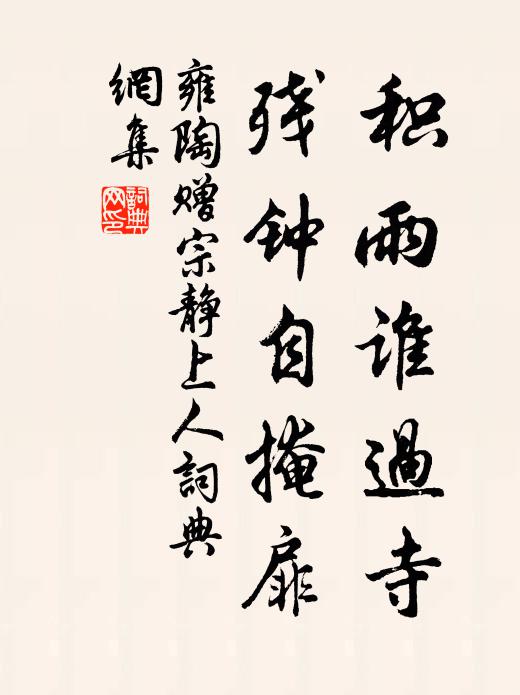 积雨谁過寺
残钟自掩扉
雍陶赠宗静上人詞典
網集
詞典
网印